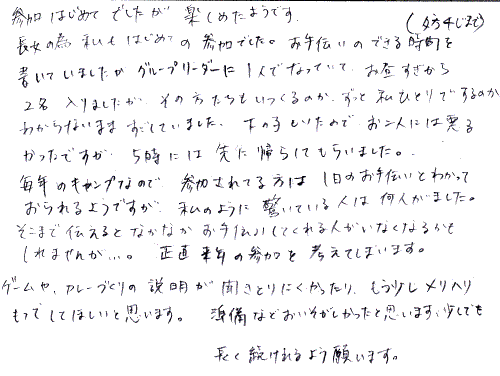 参加はじめてでしたが 楽しめたようです。
(夕方4じまで)
長女の為 私もはじめての参加でした。お手伝いのできる時間を
書いていましたが グループリーダーに1人でなっていて、お昼すぎから
2名 入りましたが、その方たちもいつくるのか、ずっと私ひとりでするのか
わからないまますごしていました。下の子もいたので お二人には悪る
かったですが 5時には先に帰らしてもらいました。
毎年のキャンプなので 参加されてる方は1日のお手伝いとわかって
おられるようですが、私のように驚いている人は何人かいました。
そこまで伝えるとなかなかお手伝いしてくれる人がいなくなるかも
しれませんが…。正直 来年の参加を考えてしまいます。
ゲームや、カレーづくりの説明が聞きとりにくかったり、もう少しメリハリ
もってしてほしいと思います。準備などおいそがしかったと思います、少しでも
長く続けれるよう願います。